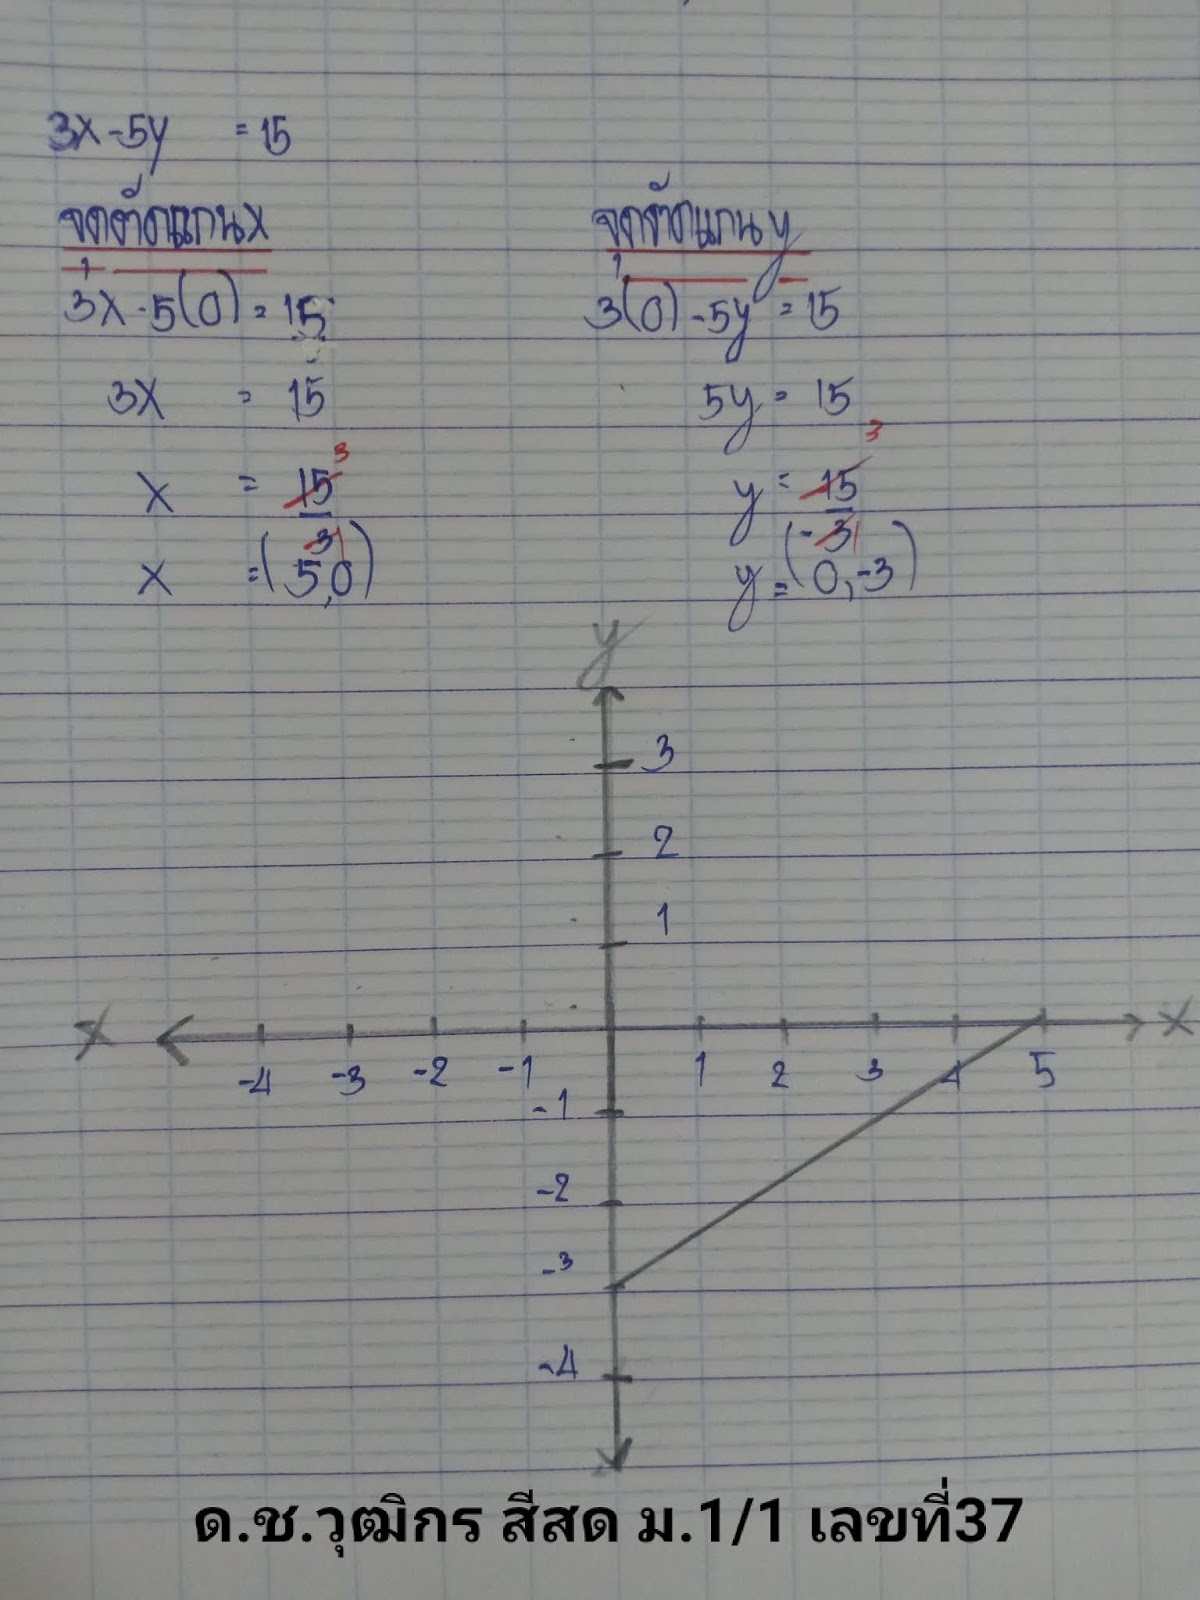 3x-5y = 15
จุดตัดแกน x
3x - 5(0) = 15
3x = 15
x = 15 3
3 1
x = (5,0)
จุดตัดแกน y
3(0) - 5y = 15
5y = 15
y = 15 3
-3 1
y = (0,-3)
y
3
2
1
x -4 -3 -2 -1 1 2 3 4 5 x
-1
-2
-3
-4
ด.ช.วุฒิกร สีสด ม.1/1 เลขที่37